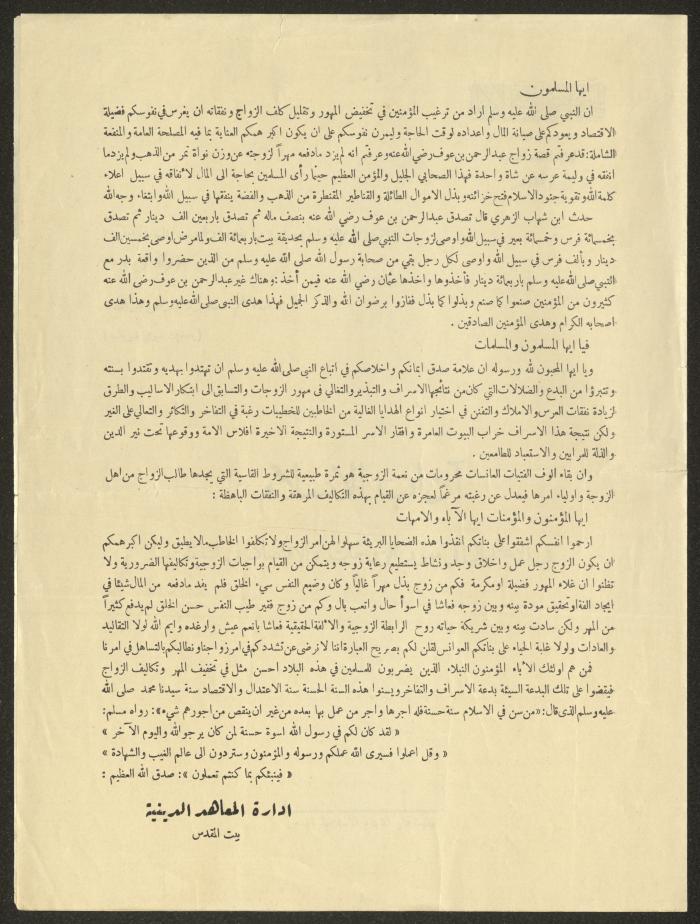 ايها المسلمون
ان النبي صلى الله عليه وسلم اراد من ترغيب المؤمنين في تخفيض المهور وتقليل كلف الزواج ونفقاته ان يغرس في نفوسكم فضيلة
الاقتصاد ويعودكم على صيانة المال واعداده لوقت الحاجة وليمرن نفوسكم على ان يكون اكبر همكم العناية بما فيه المصلحة العامة والمنفعة
الشاملة: قدعرفتم قصة زواج عبدالرحمن بن عوف رضي الله عنه وعرفتم انه لم يزد مادفعه مهراً لزوجته عن وزن نواة تمر من الذهب ولم يزد ما
انفقه في وليمة عرسه عن شاة واحدة فهذا الصحابي الجليل والمؤمن العظيم حينما رأى المسلمين بحاجة الى المال لانفاقه في سبيل اعلاء
كلمة الله وتقوية جنود الاسلام فتح خزائنه وبذل الاموال الطائلة والقناطير المقنطرة من الذهب والفضة ينفقها في سبيل الله وابتغاء وجه الله
حدث ابن شهاب الزهري قال تصدق عبدالرحمن بن عوف رضي الله عنه بنصف ماله ثم تصدق باربعين الف دينار ثم تصدق
بخمسمائة فرس وخمسمائة بعير في سبيل الله واوصى لزوجات النبي صلى الله عليه وسلم بحديقة بيعت باربعمائة الف ولما مرض اوصى بخمسين الف
دينار وبألف فرس في سبيل الله واوصى لكل رجل بقي من صحابة رسول الله صلى الله عليه وسلم من الذين حضروا واقعة بدر مع
النبي صلى الله عليه وسلم باربعمائة دينار فأخذوها واخذها عثمان رضي الله عنه فيمن أخذ: وهناك غير عبدالرحمن بن عوف رضي الله عنه
كثيرون من المؤمنين صنعوا كما صنع وبذلوا كما بذل ففازوا برضوان الله والذكر الجميل فهذا هدى النبي صلى الله عليه وسلم وهذا هدى
اصحابه الكرام وهدى المؤمنين الصادقين .
فيا ايها المسلمون والمسلمات
ويا ايها المحبون لله ورسوله ان علامة صدق ايمانكم واخلاصكم في اتباع النبي صلى الله عليه وسلم ان تهتدوا بهديه وتقتدوا بسنته
وتتبرؤا من البدع والضلالات التي كان من نتائجها الاسراف والتبذير والتغالي في مهور الزوجات والتسابق الى ابتكار الاساليب والطرق
لزيادة نفقات العرس والاملاك والتفنن في اختيار انواع الهدايا الغالية من الخاطبين للخطيبات رغبة في التفاخر والتكاثر والتعالي على الغير
ولكن نتيجة هذا الاسراف خراب البيوت العامرة وافقار الاسر المستورة والنتيجة الاخيرة افلاس الامة ووقوعها تحت نير الدين
والذلة للمرابين والاستعباد للطامعين .
وان بقاء الوف الفتيات العانسات محرومات من نعمة الزوجية هو ثمرة طبيعية للشروط القاسية التي يجدها طالب الزواج من اهل
الزوجة واولياء امرها فيعدل عن رغبته مرغماً لعجزه عن القيام بهذه التكاليف المرهقة والنفقات الباهظة :
ايها المؤمنون والمؤمنات ايها الآباء والامهات
ارحموا انفسكم اشفقوا على بناتكم انقذوا هذه الضحايا البريئة سهلوا لهن امر الزواج ولا تكلفوا الخاطب مالا يطيق وليكن اكبر همكم
ان يكون الزوج رجل عمل واخلاق وجد ونشاط يستطيع رعاية زوجه ويتمكن من القيام بواجبات الزوجية وتكاليفها الضرورية ولا
تظنوا ان غلاء المهور فضيلة او مكرمة فكم من زوج بذل مهراً غالياً وكان وضيع النفس سيء الخلق فلم يفد مادفعه من المال شيئا في
ايجاد الفة او تحقيق مودة بينه وبين زوجه فعاشا في اسوأ حال واتعب بال وكم من زوج فقير طيب النفس حسن الخلق لم يدفع كثيراً
من المهر ولكن سادت بينه وبين شريكة حياته روح الرابطة الزوجية والالفة الحقيقية فعاشا بانعم عيش وارغده وايم الله لولا التقاليد
والعادات ولولا غلبة الحياء على بناتكم العوانس لقلن لكم بصريح العبارة اننا لا نرضى عن تشددكم في امر زواجنا ونطالبكم بالتساهل في امرنا
فمن هم اولئك الآباء المؤمنون النبلاء الذين يضربون للمسلمين في هذه البلاد احسن مثل في تخفيف المهر وتكاليف الزواج
فيقضوا على تلك البدعة السيئة بدعة الاسراف والتفاخر ويسنوا هذه السنة الحسنة سنة الاعتدال والاقتصاد سنة سيدنا محمد صلى الله
عليه وسلم الذى قال: «من سن في الاسلام سنة حسنة فله اجرها واجر من عمل بها بعده من غير ان ينقص من اجورهم شيء»: رواه مسلم:
« لقد كان لكم في رسول الله اسوة حسنة لمن كان يرجو الله واليوم الآخر »
« وقل اعملوا فسيرى الله عملكم ورسوله والمؤمنون وستردون الى عالم الغيب والشهادة »
« فينبئكم بما كنتم تعملون »: صدق الله العظيم :
ادارة المعاهد الدينية
بيت المقدس